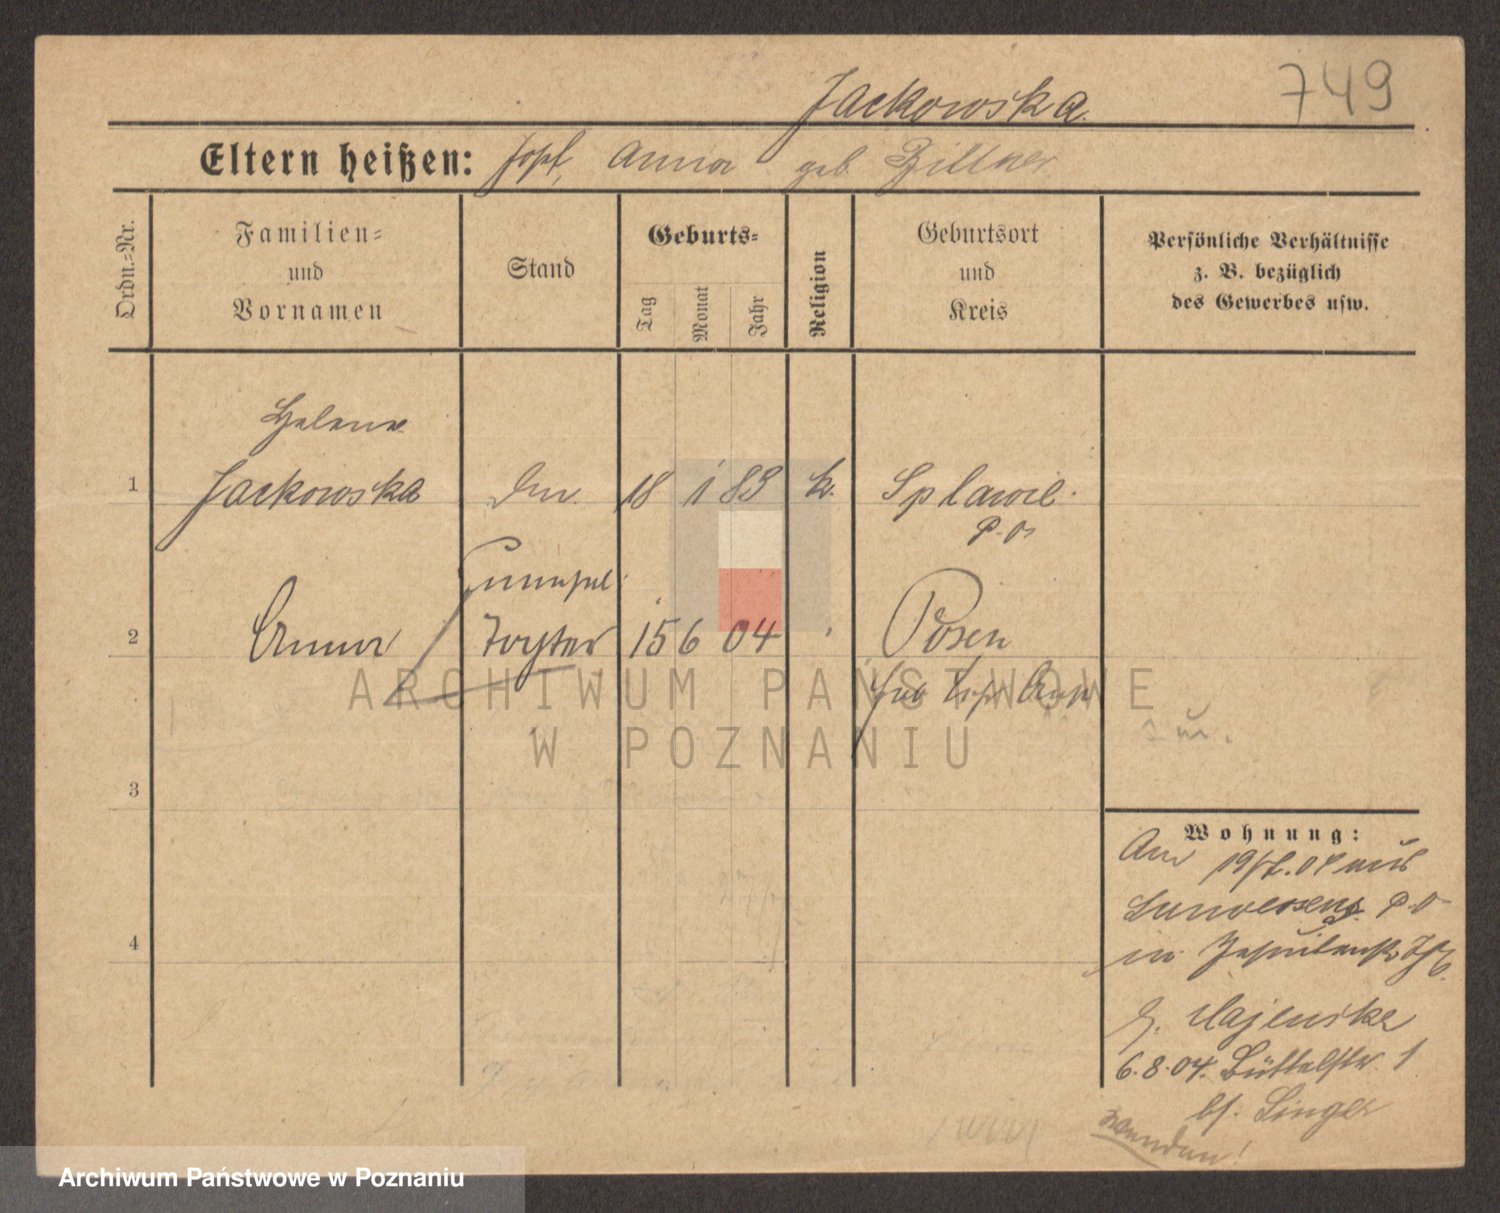 749
Jackowska
Eltern heißen: Josef, Anna geb. Bittner
Ordn.=Nr.
Familien=
und
Vornamen
Stand
Geburts=
Tag
Monat
Jahr
Religion
Geburtsort
und
Kreis
Persönliche Verhältnisse
z. B. bezüglich
des Gewerbes usw.
Helena
1 Jackowska 18 1 83 k. Splawie
P. O.
2 Anna Tochter 15 6 04 Posen
3
4
Wohnung:
Am 19/7.04 aus
P. O
in Jesuitenstr.
b. Majenska
6.8.04. Büttelstr. 1
bf. Singer
ARCHIWUM PAŃSTWOWE
W POZNANIU
Archiwum Państwowe w Poznaniu